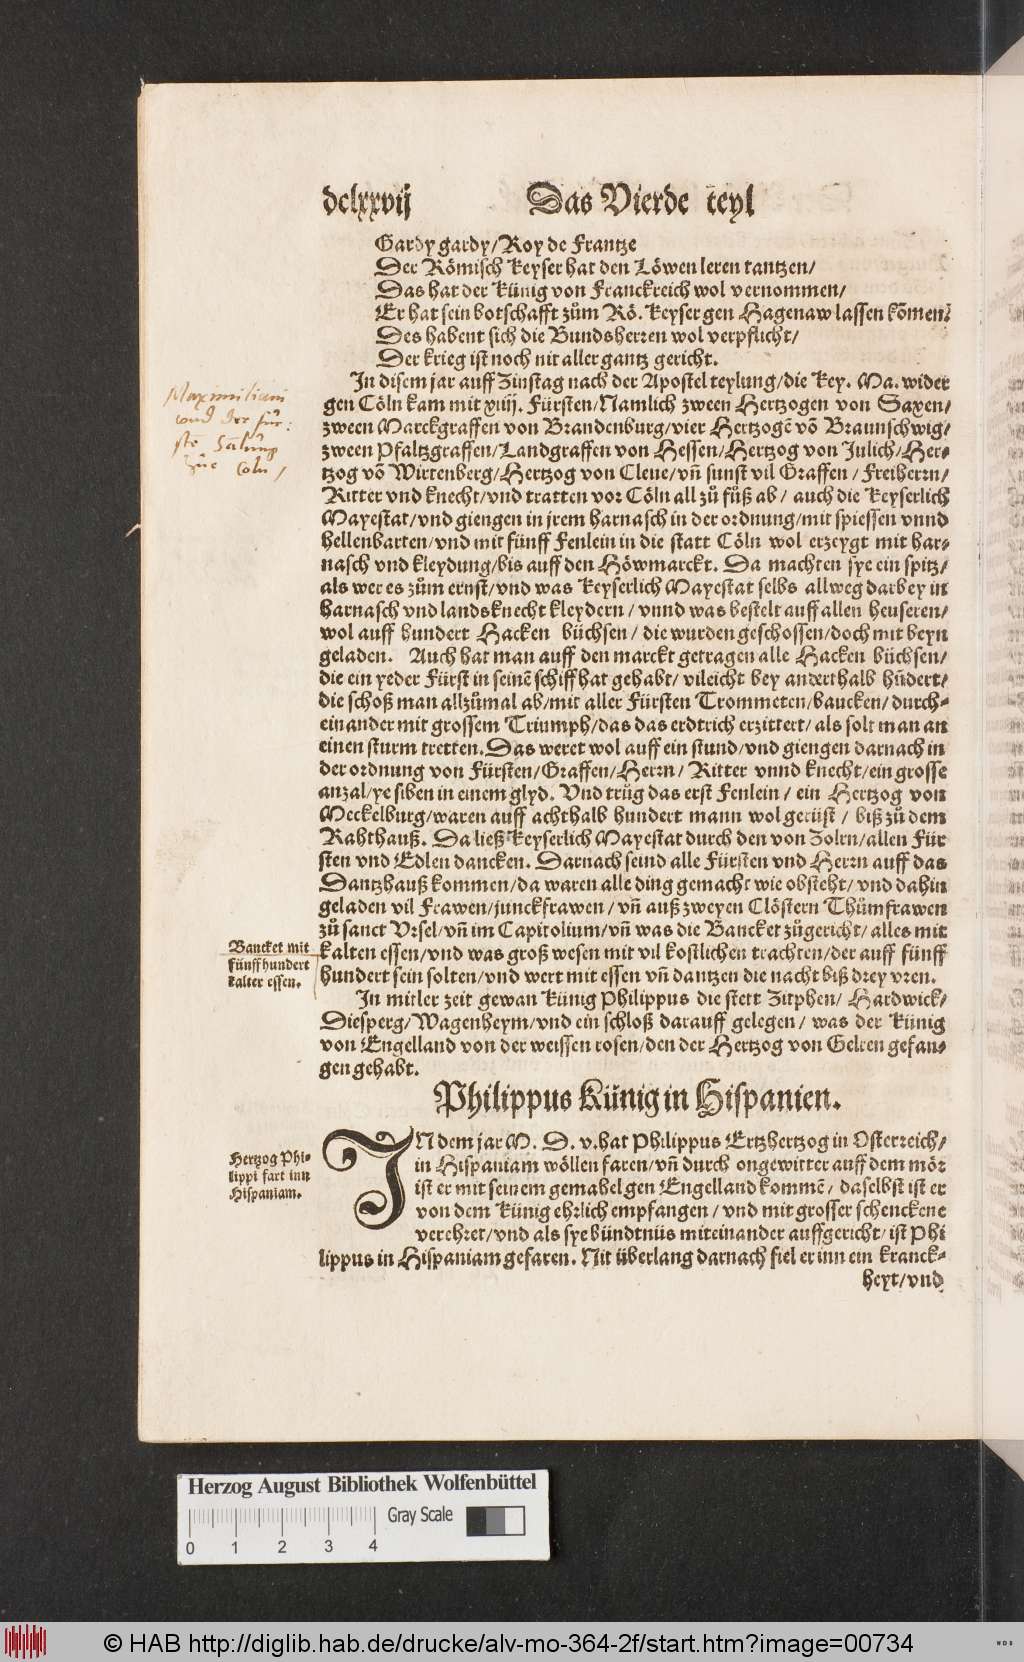 dclxxvij Das Vierde teyl
Gardy gardy/Roy de Frantze
Der Römisch Keyser hat den Löwen leren tantzen/
Das hat der Künig von Franckreich wol vernommen/
Er hat sein botschafft zům Rö. Keyser gen Hagenaw lassen kōmen/
Des habent sich die Bundsherren wol verpflicht/
Der krieg ist noch nit aller gantz gericht.
In disem jar auff Zinstag nach der Apostel teylung/die Key. Ma. wider
gen Cöln kam mit xiiij. Fürsten/Namlich zween Hertzogen von Saxen/
zween Marckgraffen von Brandenburg/vier Hertzogē vō Braunschwig/
zween Pfaltzgraffen/Landgraffen von Hessen/Hertzog von Julich/Her-
tzog vō Wirtenberg/Hertzog von Cleue/vn̄ sunst vil Graffen/Freiherrn/
Ritter vnd knecht/vnd tratten vor Cöln all zů fůß ab/ auch die Keyserlich
Mayestat/vnd giengen in jrem harnasch in der ordnung/mit spiessen vnnd
hellenbarten/vnd mit fünff Fenlein in die statt Cöln wol erzeygt mit har-
nasch vnd kleydung/bis auff den Höwmarckt. Da machten sye ein spitz/
als wer es zům ernst/vnd was Keyserlich Mayestat selbs allweg darbey in
harnasch vnd landsknecht kleydern/vnnd was bestelt auff allen heuseren/
wol auff hundert Hacken büchsen/die wurden geschossen/doch mit beyn
geladen. Auch hat man auff den marckt getragen alle Hacken büchsen/
die ein yeder Fürst in seinē schiff hat gehabt/vileicht bey anderthalb hūdert/
die schoß man allzůmal ab/mit aller Fürsten Trommeten/baucken/durch-
einander mit grossem Triumph/das das erdtrich erzittert/als solt man an
einen sturm tretten. Das weret wol auff ein stund/vnd giengen darnach in
der ordnung von Fürsten/Graffen/Herrn/Ritter vnnd knecht/ein grosse
anzal/ye siben in einem glyd. Vnd trůg das erst Fenlein/ein Hertzog von
Meckelburg/waren auff achthalb hundert mann wol gerüst/biß zů dem
Rahthauß. Da ließ Keyserlich Mayestat durch den von Zolrn/allen Für
sten vnd Edlen dancken. Darnach seind alle Fürsten vnd Herrn auff das
Dantzhauß kommen/da waren alle ding gemacht wie obsteht/vnd dahin
geladen vil Frawen/junckfrawen/vn̄ auß zweyen Clöstern Thůmfrawen
zů sanct Vrsel/vn̄ im Capitolium/vn̄ was die Bancket zůgericht/alles mit
kalten essen/vnd was groß wesen mit vil kostlichen trachten/der auff fünff
hundert sein solten/vnd wert mit essen vn̄ dantzen die nacht biß drey vren.
In mitler zeit gewan Künig Philippus die stett Zitphen/Hardwick/
Diesperg/Wagenheym/vnd ein schloß darauff gelegen/was der Künig
von Engelland von der weissen rosen/den der Hertzog von Gelren gefan-
gen gehabt.
Philippus Künig in Hispanien.
IN dem jar M. D. v. hat Philippus Ertzhertzog in Osterreich/
in Hispaniam wöllen faren/vn̄ durch ongewitter auff dem mör
ist er mit seinem gemahel gen Engelland kommē/daselbst ist er
von dem Künig ehrlich empfangen/vnd mit grosser schenckene
verehret/vnd als sye bündtnüs miteinander auffgericht/ist Phi
lippus in Hispaniam gefaren. Nit überlang darnach fiel er inn ein kranck-
heyt/vnd
Maximiliani
vnd der für:
ste
Cöln/
Bancket mit
fünffhundert
kalter essen.
Hertzog Phi-
lippi fart inn
Hispaniam.
Herzog August Bibliothek Wolfenbüttel
Gray Scale
0 1 2 3 4
© HAB http://diglib.hab.de/drucke/alv-mo-364-2f/start.htm?image=00734